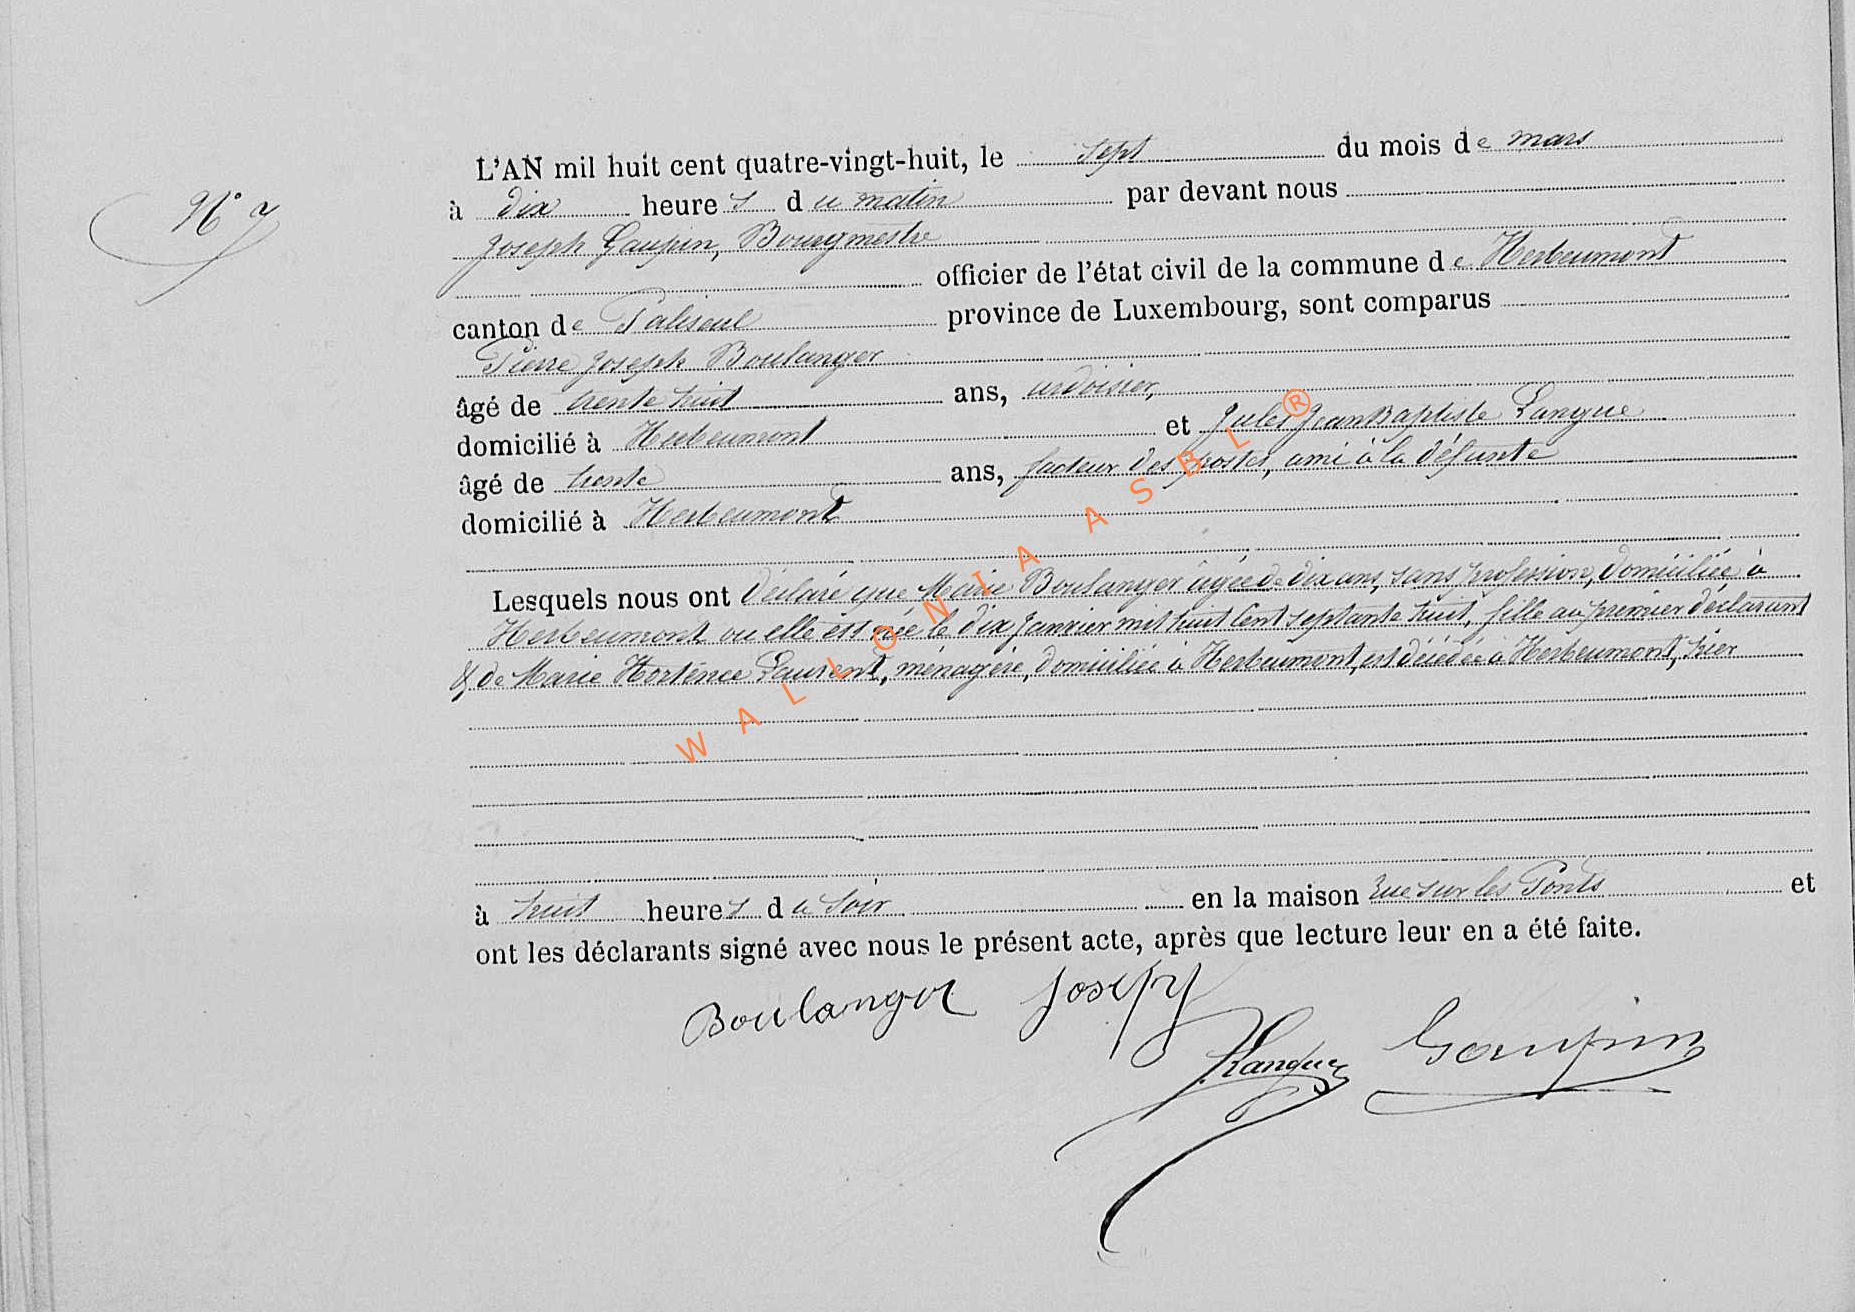 N° 7
L'AN mil huit cent quatre-vingt-huit, le sept du mois de mars
à dix heures du matin par devant nous
Joseph Gaupin, Bourgmestre
officier de l'état civil de la commune de Herbeumont
canton de Paliseul province de Luxembourg, sont comparus
Pierre Joseph Boulanger
âgé de trente huit ans, ardoisier,
domicilié à Herbeumont et Jules Jean Baptiste Langue
âgé de trente ans, facteur des postes, ami à la défunte
domicilié à Herbeumont
Lesquels nous ont déclaré que Marie Boulanger âgée de dix ans, sans profession, domiciliée à
Herbeumont ou elle est née le dix Janvier mil huit cent septante huit, fille au premier déclarant
& de Marie Hortence Laurent, ménagère, domiciliée à Herbeumont, est décédée à Herbeumont, hier
à huit heures du soir en la maison rue sur les Ponts et
ont les déclarants signé avec nous le présent acte, après que lecture leur en a été faite.
Boulanger Joseph
J. Langue Gaupin
WALLONIA ASBL ®